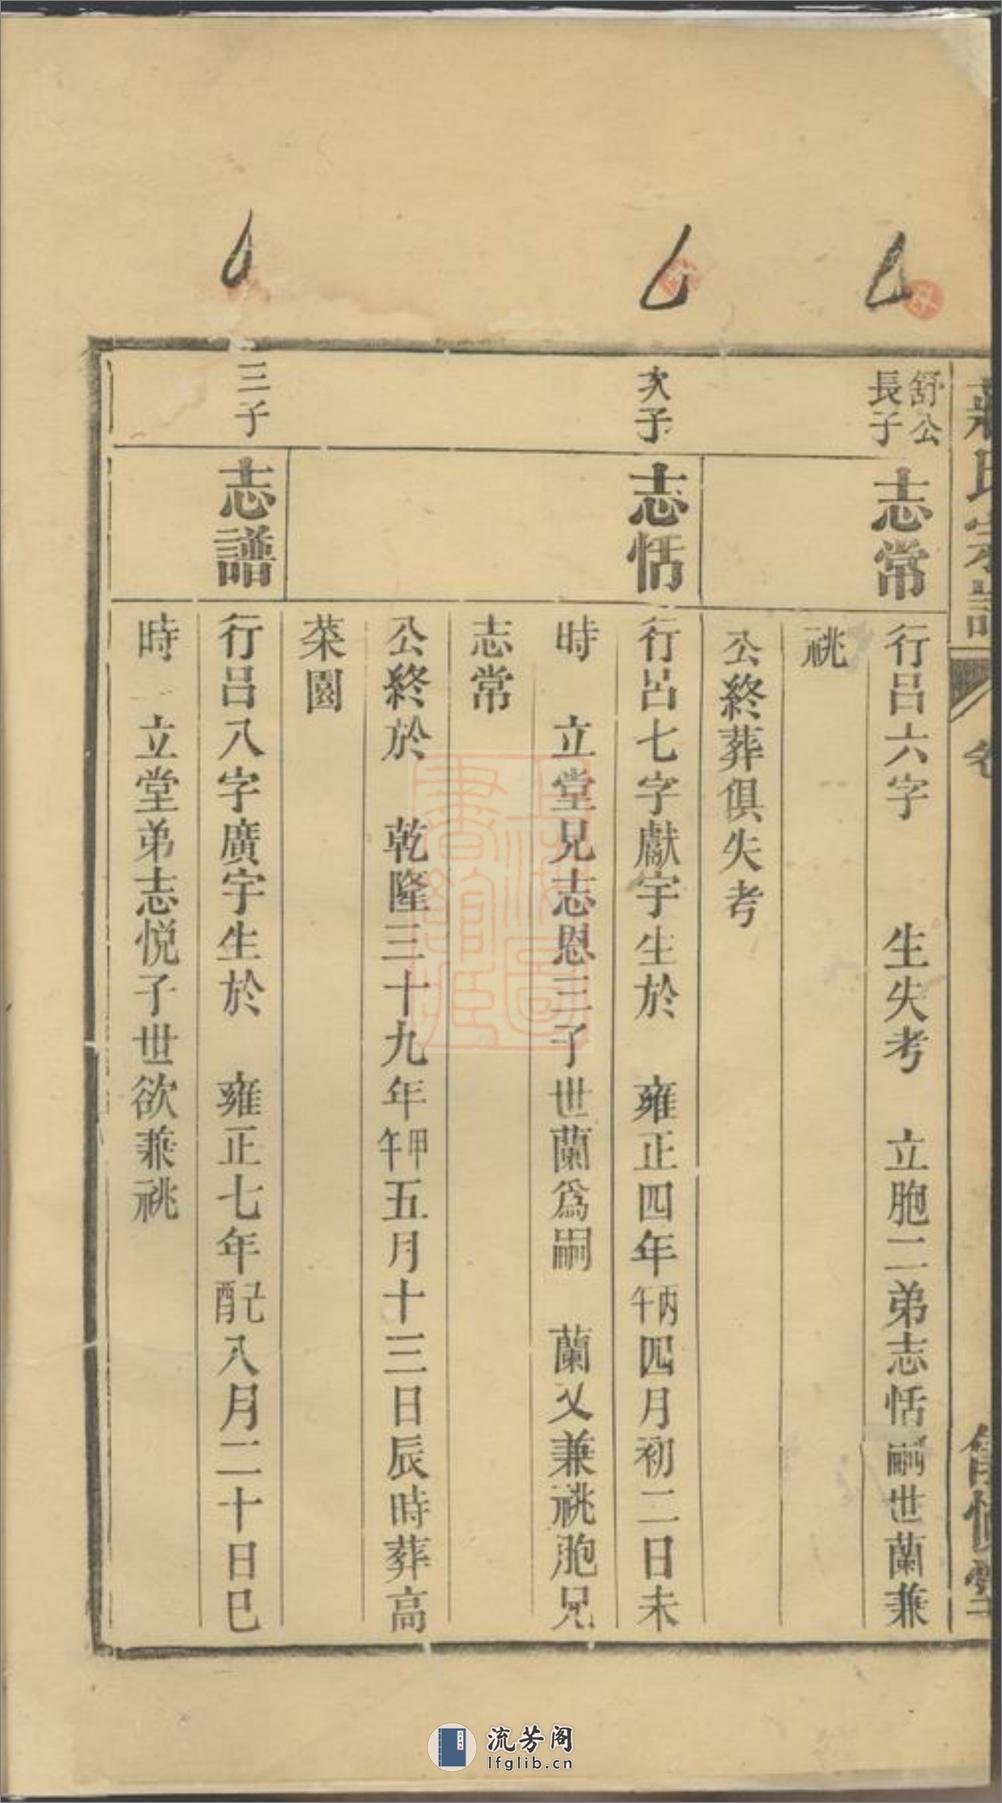 蔣氏宗譜
舒公
長子
志常
行呂六字　　生失考　立胞二弟志恬嗣世蘭兼
祧
公終葬俱失考
次子
志恬
行呂七字獻宇生於　雍正四年丙午四月初二日未
時　立堂兄志恩三子世蘭爲嗣　蘭又兼祧胞兄
志常
公終於　乾隆三十九年甲午五月十三日辰時葬高
菜園
三子
志譜
行呂八字廣宇生於　雍正七年己酉八月二十日巳
時　立堂弟志悦子世欲兼祧
上海圖書館藏
流芳阁
lfglib.cn